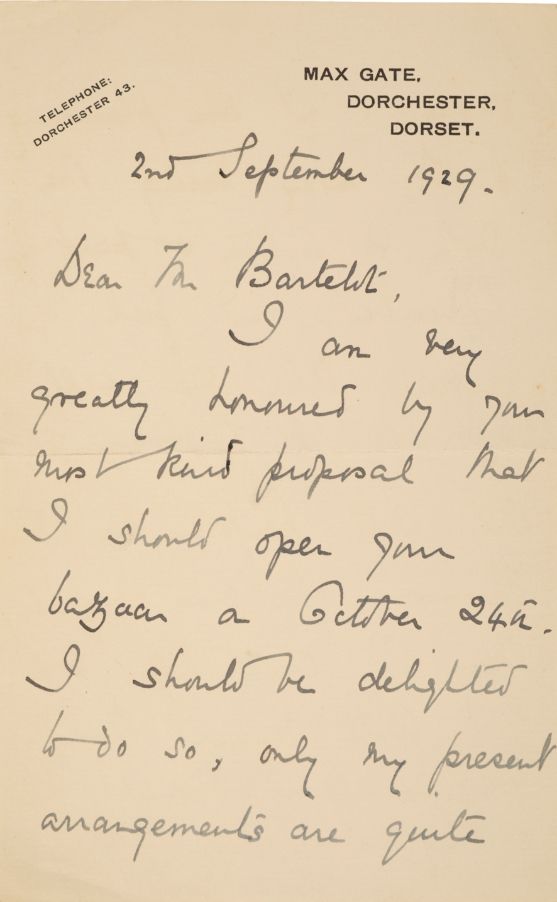 TELEPHONE:
DORCHESTER 43.
MAX GATE,
DORCHESTER,
DORSET.
2nd September 1929.
Dear Mr Bartelot,
I am very
greatly honoured by your
most kind proposal that
I should open your
bazaar on October 24th.
I should be delighted
to do so, only my present
arrangements are quite